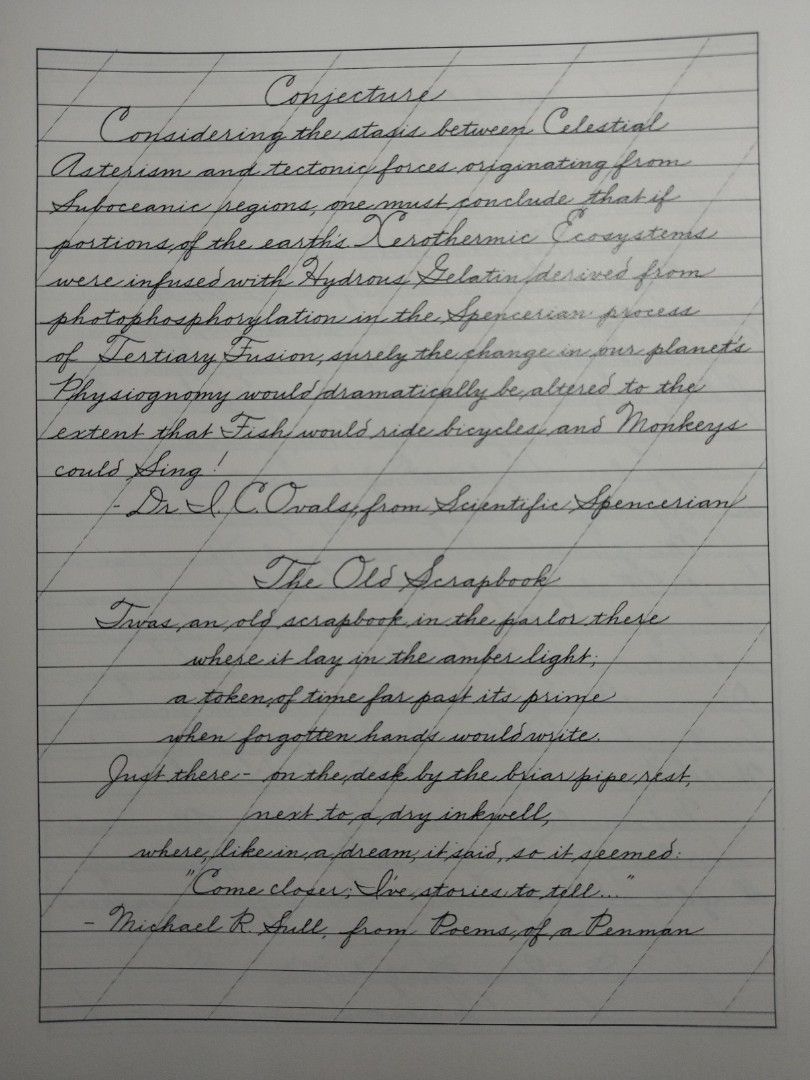 Conjecture
Considering the stasis between Celestial
Asterism and tectonic forces originating from
Suboceanic regions, one must conclude that if
portions of the earth's Xerothermic Ecosystems
were infused with Hydrous Gelatin derived from
photophosphorylation in the Spencerian process
of Tertiary Fusion, surely the change in our planet's
Physiognomy would dramatically be altered to the
extent that Fish would ride bicycles and Monkeys
could Sing!
- Dr. I. C. Ovals, from Scientific Spencerian
The Old Scrapbook
Twas an old scrapbook in the parlor there
where it lay in the amber light;
a token of time far past its prime
when forgotten hands would write.
Just there - on the desk by the briar pipe rest,
next to a dry inkwell,
where, like in a dream, it said, so it seemed:
"Come closer; I've stories to tell..."
- Michael R. Sull, from Poems of a Penman